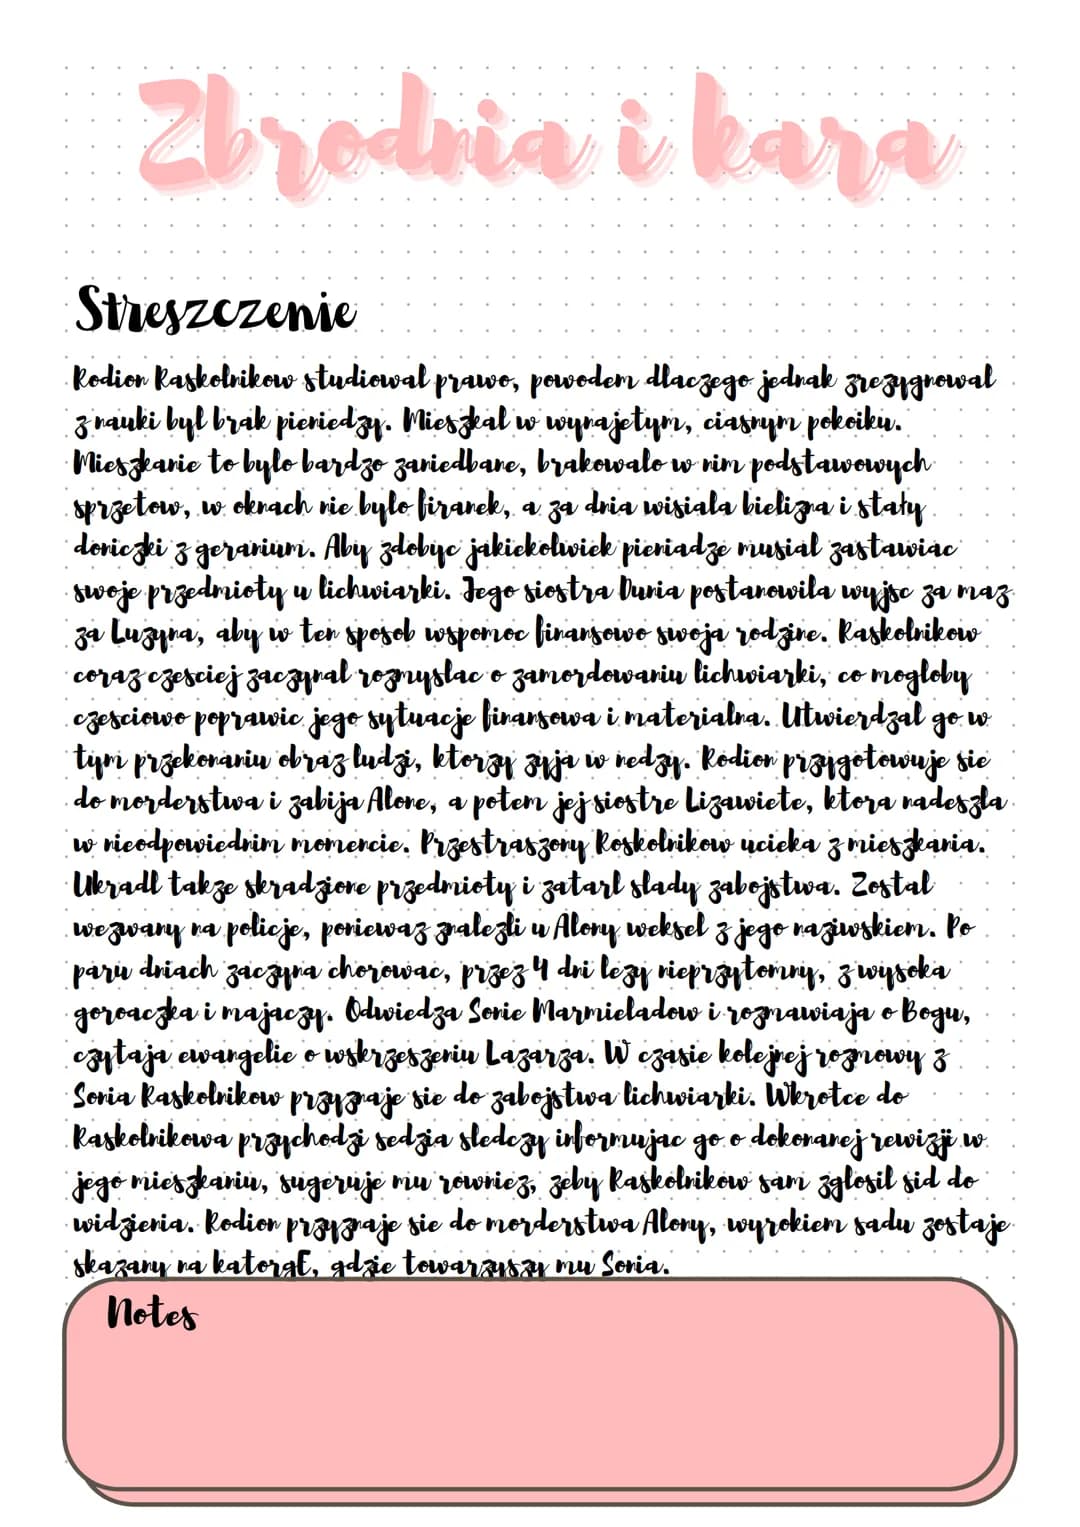 Zbrodnia i kara
Streszczenie
Rodion Raskolnikow studiowal prawo, powodem dlaczego jednak zrezygnowal
z nauki byl brak pieniedzy. Mieszkal w wynajetym, ciasnym pokoiku.
Mieszkanie to bylo bardzo zaniedbane, brakowalo w nim podstawowych
sprzetow, w oknach nie bylo firanek, a za dnia wisiala bielizna i stały
doniczki z geranium. Aby zdobyc jakiekolwiek pieniadze musial zastawiac
swoje przedmioty u lichwiarki. Jego siostra Dunia postanowila wyjsc za maz
za Luzyna, aby w ten sposob wspomoc finansowo swoja rodzine. Raskolnikow
coraz czesciej zaczynal rozmyslac o zamordowaniu lichwiarki, co mogloby
czesciowo poprawic jego sytuacje finansowa i materialna. Utwierdzal go w
tym przekonaniu obraz ludzi, ktorzy zyja w nedzy. Rodion przygotowuje sie
do morderstwa i zabija Alone, a potem jej siostre Lizawiete, ktora nadeszla
w nieodpowiednim momencie. Przestraszony Roskolnikow ucieka z mieszkania.
Ukradl takze skradzione przedmioty i zatarl slady zabojstwa. Zostal
wezwany na policje, poniewaz znalezli u Alony weksel z jego naziwskiem. Po
paru dniach zaczyna chorowac, przez 4 dni lezy nieprzytomny, z wysoka
goroaczka i majaczy. Odwiedza Sonie Marmieladow i rozmawiaja o Bogu,
czytaja ewangelie o wskrzeszeniu Lazarza. W czasie kolejnej rozmowy z
Sonia Raskolnikow przyznaje sie do zabojstwa lichwiarki. Wkrotce do
Raskolnikowa przychodzi sedzia sledczy informujac go o dokonanej rewizji w
jego mieszkaniu, sugeruje mu rowniez, zeby Raskolnikow sam zglosil sid do
widzienia. Rodion przyznaje sie do morderstwa Alony, wyrokiem sadu zostaje
skazany na katorgE, gdzie towarzyszy mu Sonia.
Notes